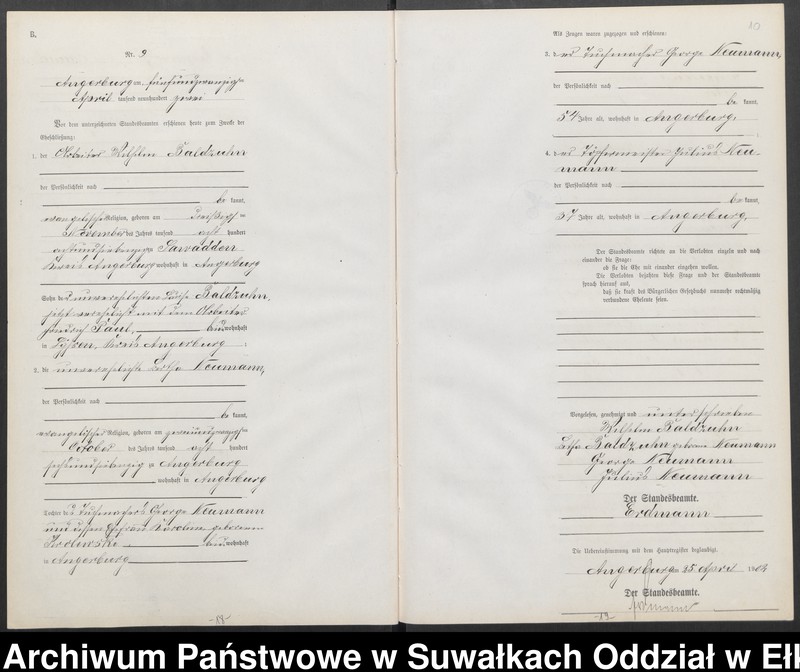 B.
Nr. 9
Angerburg am fünfundzwanzigsten
April tausend neunhundert zwei
Vor dem unterzeichneten Standesbeamten erschienen heute zum Zwecke der
Eheschließung:
1. der Arbeiter Wilhelm Baldzuhn
der Persönlichkeit nach
be kannt,
evangelischer Religion, geboren am dreißigsten
November des Jahres tausend acht hundert
achtundsiebenzig zu Sawadden
Kreis Angerburg wohnhaft in Angerburg
Sohn der unverehelichten Baldzuhn,
jetzt verehelicht mit dem Arbeiter
Paul, beide wohnhaft
in Kreis Angerburg ;
2. die unverehelichte Bertha Neumann,
der Persönlichkeit nach
be kannt,
evangelischer Religion, geboren am zweiundzwanzigsten
October des Jahres tausend acht hundert
sechsundsiebenzig zu Angerburg
wohnhaft in Angerburg
Tochter des Tuchmachers George Neumann
und dessen Ehefrau Karoline geborenen
beide wohnhaft
in Angerburg
-18-
10
Als Zeugen waren zugezogen und erschienen:
3. der Tuchmacher George Neumann,
der Persönlichkeit nach
be kannt,
Jahre alt, wohnhaft in Angerburg,
;
4. der Töpfermeister Julius Neu-
mann
der Persönlichkeit nach
be kannt,
Jahre alt, wohnhaft in Angerburg
Der Standesbeamte richtete an die Verlobten einzeln und nach
einander die Frage:
ob sie die Ehe mit einander eingehen wollen.
Die Verlobten bejahten diese Frage und der Standesbeamte
sprach hierauf aus,
daß sie kraft des Bürgerlichen Gesetzbuchs nunmehr rechtmäßig
verbundene Eheleute seien.
Vorgelesen, genehmigt und unterschrieben
Wilhelm Baldzuhn
Bertha Baldzuhn geborene Neumann
George Neumann
Julius Neumann
Der Standesbeamte.
Erdmann
Die Uebereinstimmung mit dem Hauptregister beglaubigt.
Angerburg am 25. April 1902
Der Standesbeamte.
Erdmann
-19-
Archiwum Państwowe w Suwałkach Oddział w Eł